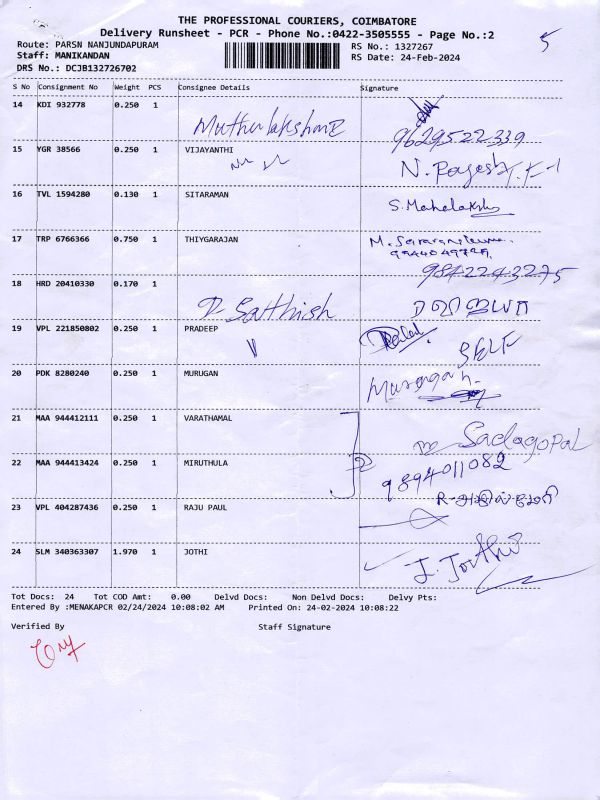 THE PROFESSIONAL COURIERS, COIMBATORE
Delivery Runsheet - PCR - Phone No.:0422-3505555 - Page No.:2
5
Route: PARSN NANJUNDAPURAM
RS No.: 1327267
Staff: MANIKANDAN
RS Date: 24-Feb-2024
DRS No.: DCJB132726702
S No Consignment No Weight PCS Consignee Details Signature
14 KDI 932778 0.250 1
Muthulakshmi 9629522339
15 YGR 38566 0.250 1 VIJAYANTHI
N.
16 TVL 1594280 0.130 1 SITARAMAN
S. Mahalakshmi
17 TRP 6766366 0.750 1 THIYGARAJAN
9842243275
18 HRD 20410330 0.170 1
Sathish
19 VPL 221850802 0.250 1 PRADEEP
SELF
20 PDK 8280240 0.250 1 MURUGAN
Murugan
21 MAA 944412111 0.250 1 VARATHAMAL
Sadagopal
22 MAA 944413424 0.250 1 MIRUTHULA
9894011082
23 VPL 404287436 0.250 1 RAJU PAUL
24 SLM 340363307 1.970 1 JOTHI
J. Jothi
Tot Docs: 24 Tot COD Amt: 0.00 Delvd Docs: Non Delvd Docs: Delvy Pts:
Entered By :MENAKAPCR 02/24/2024 10:08:02 AM Printed On: 24-02-2024 10:08:22
Verified By Staff Signature